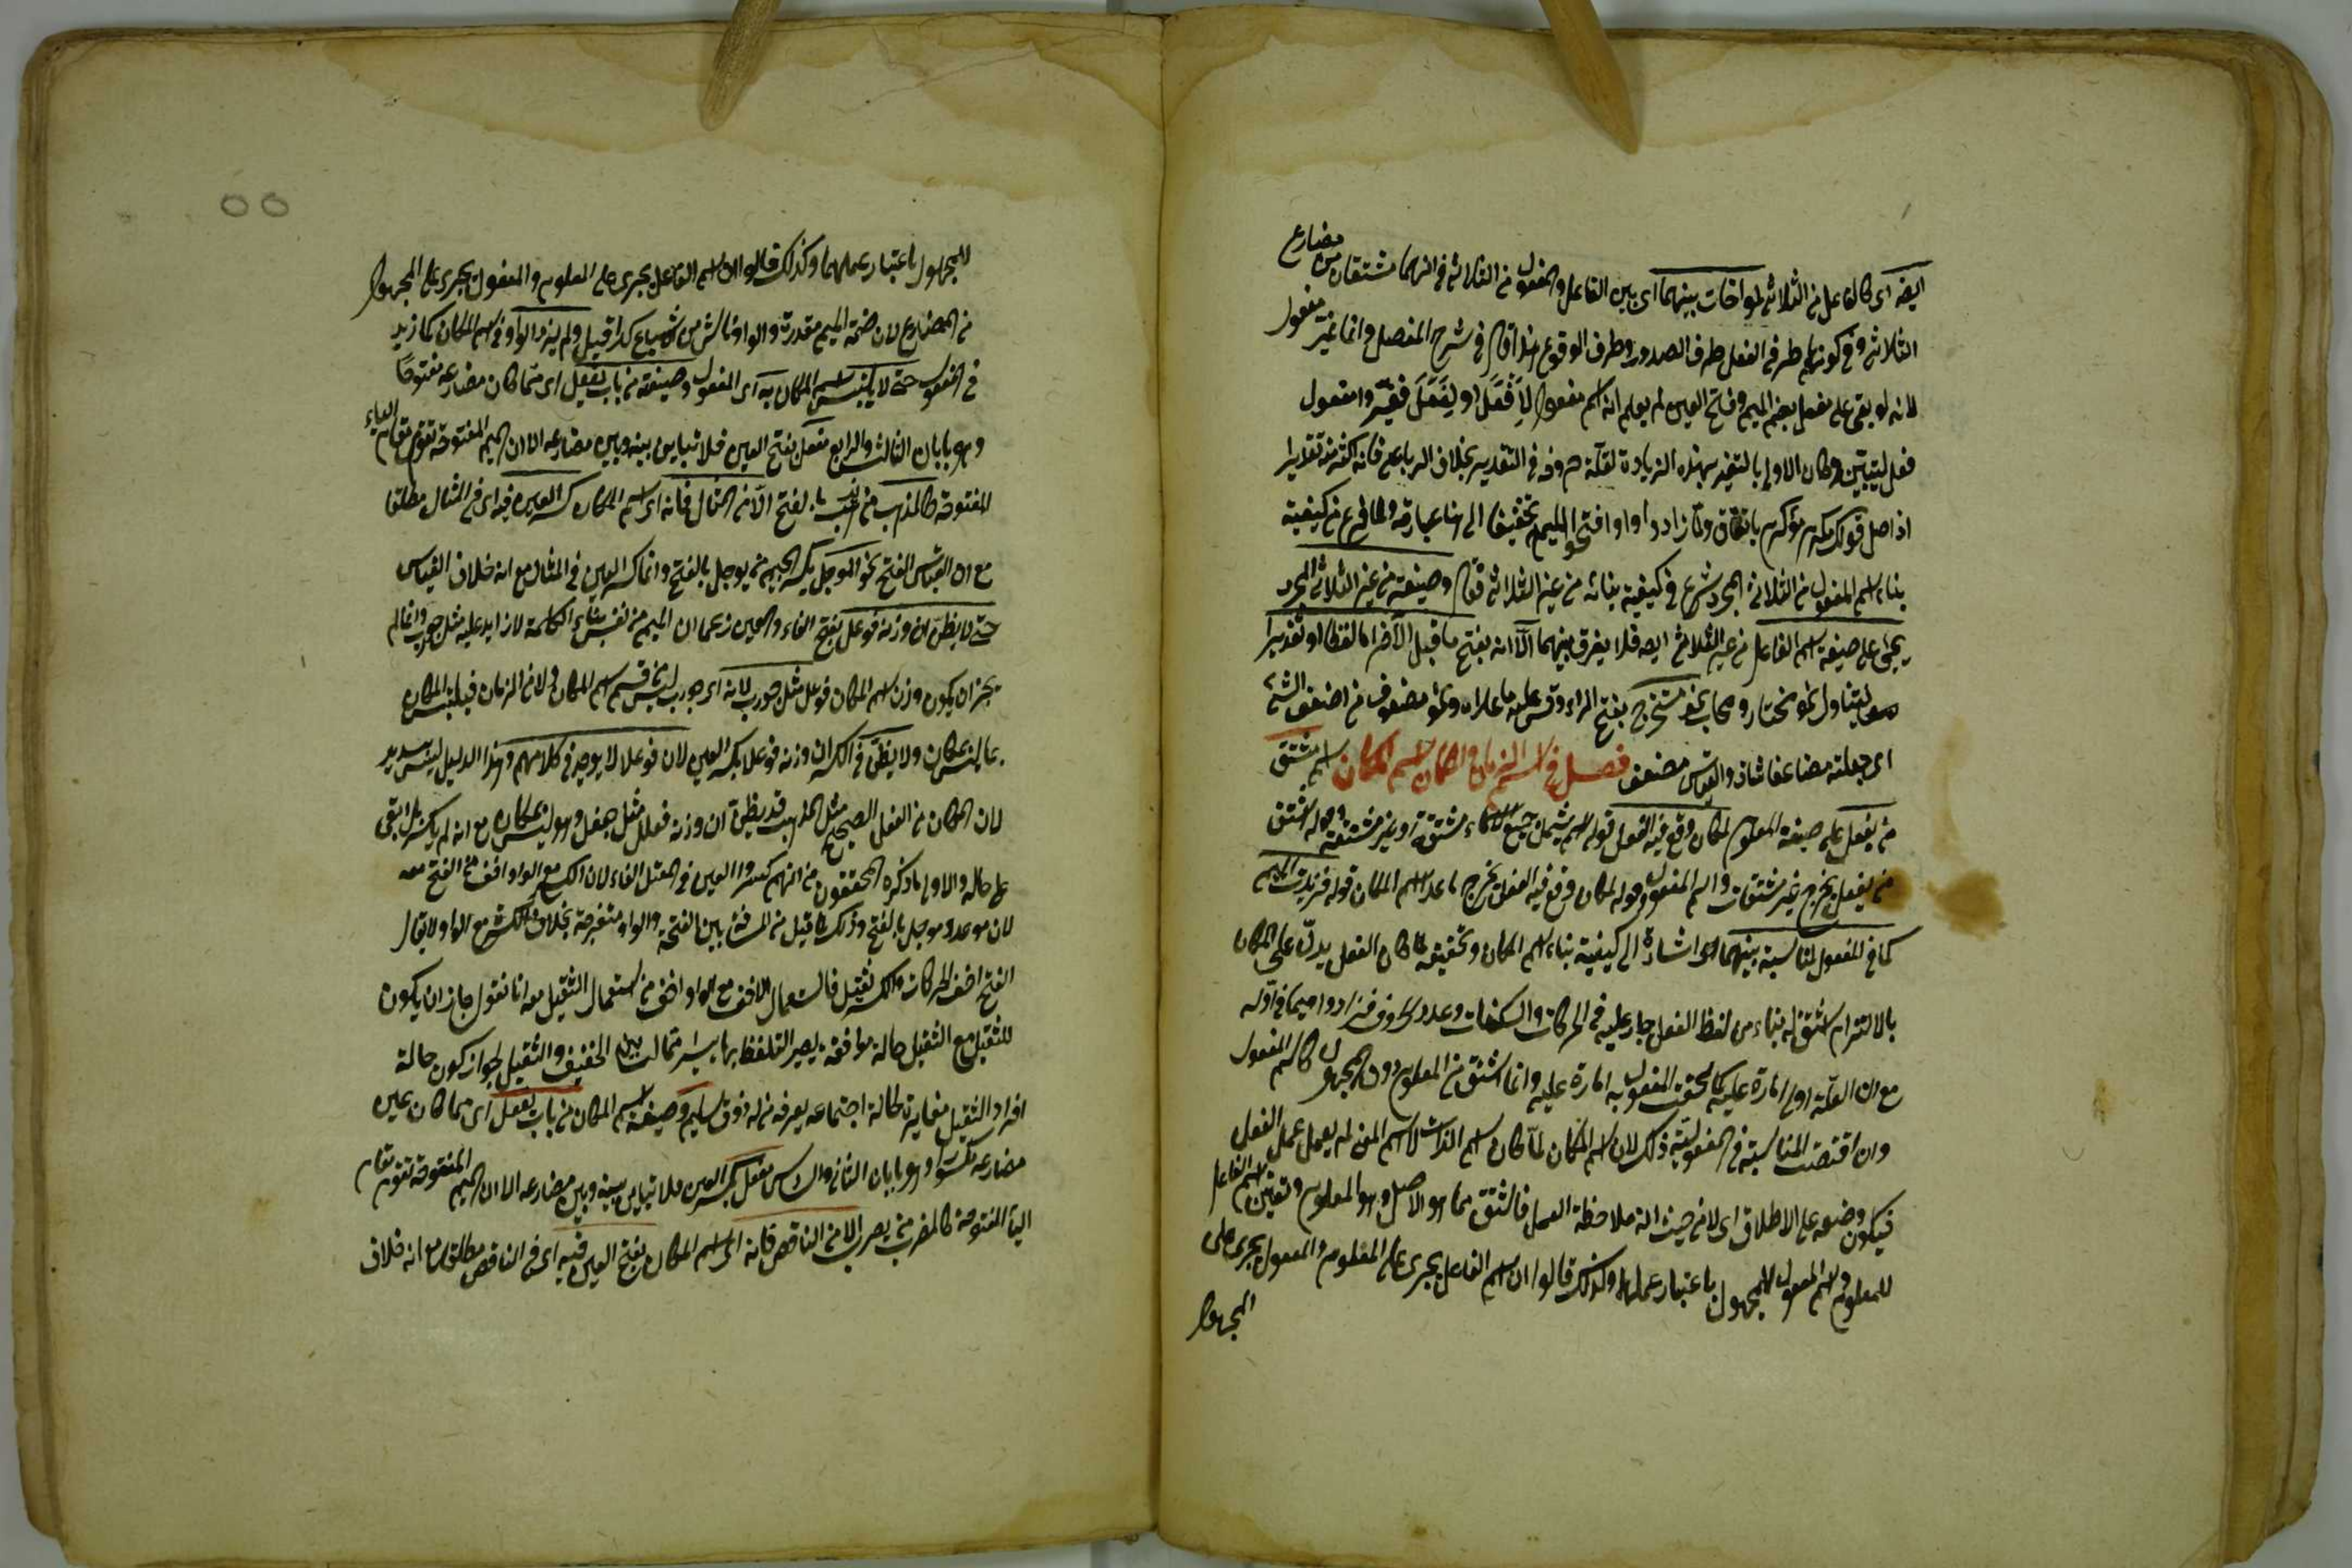 ايضا اى كالفاعل من الثلاثى لمواخات بينهما اى بين الفاعل والمفعول من الثلاثى فى انهما مشتقان من مضارع
الثلاثى وفى كونهما طرفى الفعل طرف الصدور وطرف الوقوع هذا قال فى شرح المفصل وانما غير مفعول
لانه لو بقى على مفعل بضم الميم وفتح العين لم يعلم انه اسم مفعول لِاَفْعَلَ او لِفَعَلَ فغيروا مفعول
فعل ليتبين وكان الاولى بالتغير بهذه الزيادة لقلة حروفه فى التقدير بخلاف الرباعى فانه اكثر منه تقديرا
اذ اصل قولك مكرم مؤكرم باتفاق ولما زادوا واوا فتحوا الميم تخفيفا الى هنا عبارته ولما فرغ من كيفية
بناء اسم المفعول من الثلاثى المجرد شرع فى كيفية بنائه من غير الثلاثى فقال وصيغته من غير الثلاثى المجرد
يجئ على صيغة اسم الفاعل من غير الثلاثى ايضا فلا يفرق بينهما الا انه بفتح ما قبل الآخر اما لفظا او تقديرا
ليتناول نحو مختار ومحاب نحو مستخرج بفتح الراء وقس عليه ما عداه ونحو مضعوف من اضعف الشئ
اى جعلته مضاعفا شاذ والقياس مضعف فصل فى اسم الزمان والمكان اسم المكان اسم مشتق
من يفعل على صيغة المعلوم لمكان وقع فيه الفعل قوله اسم يشمل جميع الاسماء مشتقة وغير مشتقة وقوله مشتق
من يفعل يخرج غير مشتقات واسم المفعول وقوله لمكان وقع فيه الفعل يخرج ما عدا اسم المكان قوله فزيدت الميم
كما فى المفعول لمناسبة بينهما اشارة الى كيفية بناء اسم المكان وتحقيقه لما كان الفعل يدل على المكان
بالالتزام اشتق له بناء من لفظ الفعل جار عليه فى الحركات والسكنات وعدد الحروف فزادوا ميما فى اوله
مع ان العلة اولى امارة عليه كما لحقت المفعول به امارة عليه وانما اشتق من المعلوم دون المجهول كاسم المفعول
وان اقتضت المناسبة فى المفعولية ذلك لان اسم المكان لما كان اسم الذات لا اسم المعنى لم يعمل عمل الفعل
فيكون وضعه على الاطلاق اى لا من حيث انه ملاحظة العمل فاشتق مما هو الاصل وهو المعلوم وتعين اسم الفاعل
للمعلوم واسم المفعول للمجهول باعتبار عملهما وكذلك قالوا ان اسم الفاعل يجرى على المعلوم والمفعول يجرى على
المجهول
٥٥
للمجهول باعتبار عملهما وكذلك قالوا ان اسم الفاعل يجرى على المعلوم والمفعول يجرى على المجهول
من المضارع لان ضمة الميم مقدرة والواو ناش من اشباع كذا قيل ولم يزد الواو فى اسم المكان كما زيد
فى المفعول حتى لا يلتبس اسم المكان به اى المفعول وصيغته من باب يفعل اى مما كان مضارعه مفتوحا
وهو بابان الثالث والرابع مفعل بفتح العين فلا تباين بينه وبين مضارعه الا ان الميم المفتوحة تقوم مقام الياء
المفتوحة كالمذهب من يذهب بالفتح الا من المثال فانه اى اسم المكان كسر العين فيه اى فى المثال مطلقا
مع ان القياس الفتح نحو الموجل بكسر الجيم من يوجل بالفتح وانما كسر العين فى المثال مع انه خلاف القياس
حتى لا يظن ان وزنه فوعل بفتح الفاء والعين زعما ان الميم من نفس بناء الكلمة لا زايد عليه مثل جورب وانما لم
يجز ان يكون وزن اسم المكان فوعل مثل جورب لانه اى جورب ليس من قسم اسم المكان ولا من الزمان فيلتبس المكان
بما ليس بمكان ولا يظن فى الكسر ان وزنه فوعلا بكسر العين لان فوعلا لا يوجد فى كلامهم وهذا الدليل ليس بسديد
لان المكان من الفعل الصحيح مثل المذهب قد يظن ان وزنه فعلل مثل جعفر وهو ليس بمكان مع انه لم يكسر بل ابقى
على حاله والاولى ما ذكره المحققون من انهم كسروا العين فى المعتل الفاء لان الكسر مع الواو اخف من الفتح معه
لان موعد وموجل بالفتح وذلك لما قيل من المسافة بين الفتحة والواو منفرجة بخلاف الكسر مع الواو لا يقال
الفتح اخف الحركات والكسر ثقيل فاستعمال الاخف مع الواو اخف من استعمال الثقيل معه انا نقول جاز ان يكون
للثقيل مع الثقيل حالة موافقة يصير التلفظ بها يسرا مما لست بين الخفيف والثقيل لجواز كون حالة
افراد الثقيل مغايرة لحالة اجتماعه يعرفه من له ذوق سليم وصيغة اسم المكان من باب يفعل اى مما كان عين
مضارعه مكسورا وهو بابان الثانى والسادس مفعل بكسر العين فلا تباين بينه وبين مضارعه الا ان الميم المفتوحة تقوم مقام
الياء المفتوحة كالمضرب من يضرب الا من الناقص فانه اى اسم المكان بفتح العين فيه اى فى الناقص مطلقا مع انه خلاف